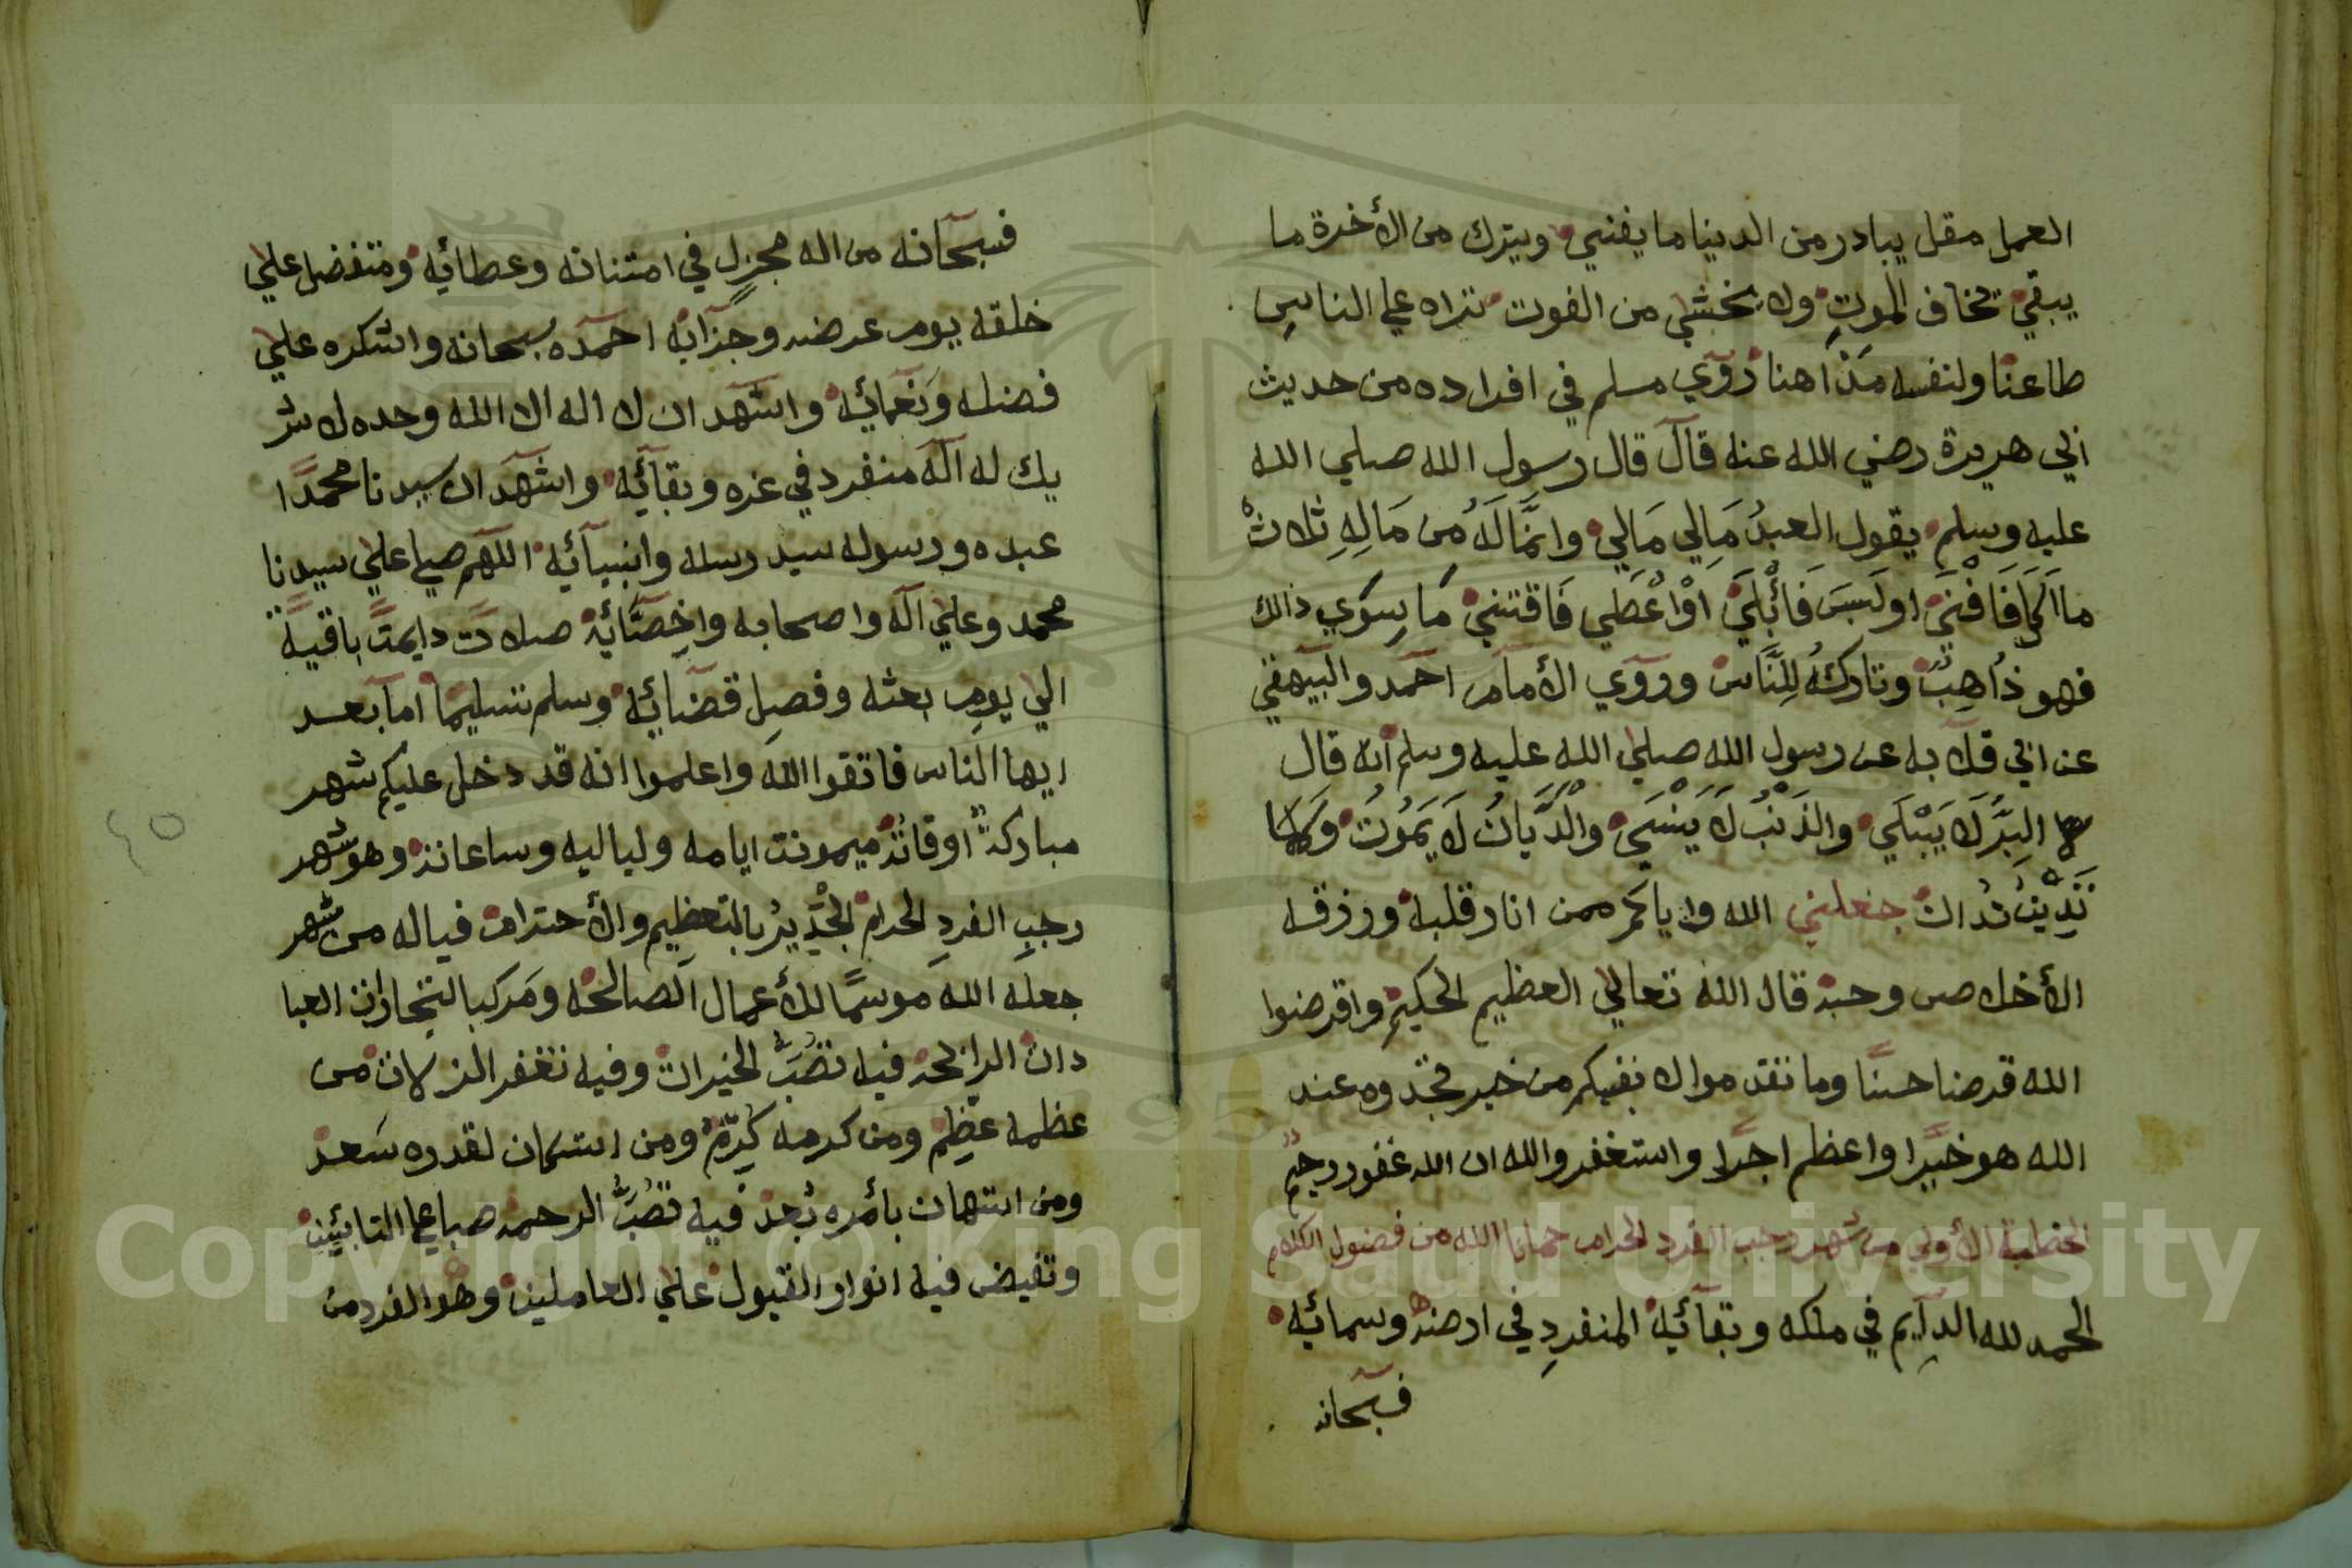 العمل مقل يبادر من الدينا ما يفني ويترك من الأخرة ما
يبقي تخاف الموت ولا يخشي من الفوت تراه علي الناس
طاعنا ولنفسه مذاهنا روي مسلم في افراده من حديث
ابي هريرة رضي الله عنه قال قال رسول الله صلي الله
عليه وسلم يقول العبدُ مَالِي مَالِي وانَّمَا لَهُ مِن مَالِهِ ثلاث
ما اكل فَافْنَي او لَبِسَ فَأَبْلَي اوْ اعْطَي فَاقتني مَا سِوَي ذالك
فهو ذَاهِبٌ وتاركُهُ لِلنَّاس وروي الأمام احمد والبيهقي
عن ابي قلابه عن رسول الله صلي الله عليه وسلم انه قال
البِرّ لَا يَبْلَي والذَنْبُ لَا يَنْسَي والدَّيَّانُ لَا يَمُوتُ وَكما
تَدِينُ تُدان جعلني الله واياكم ممن انار قلبه ورزقه
الأخلاص وحبه قال الله تعالي العظيم الحكيم واقرضوا
الله قرضا حسنًا وما تقدموا لانفسكم من خير تجدوه عند
الله هو خيرًا واعظم اجرًا واستغفروالله ان الله غفور رحيمٌ
الخطبة الأولي من شهر رجب الفرد الحرام حمانا الله من فضول الكلام
الحمد لله الدايم في ملكه وبقائه المنفردِ في ارضه وسمائه
فسبحانه
فسبحانه من اله مجزلٍ في امتنانه وعطائه ومتفضل علي
خلقه يوم عرضه وجزائه احمده سبحانه واشكره علي
فضله وَنعمائه واشهد ان لا اله الا الله وحده لا شر
يك له اله منفرد في عزه وبقائه واشهد ان سيدنا محمدًا
عبده ورسوله سيد رسله وانبيائه اللهم صلي علي سيدنا
محمد وعلي اله واصحابه واخِصَّائه صلات دايمتً باقيةً
الي يومِ بعثه وفصلِ قضائه وسلم تسليمًا اما بعد
ايها الناس فاتقوا الله واعلموا انه قد دخل عليكم شهر
مباركة اوقاته ميمونت ايامه ولياليه وساعاته وهو شهر
رجبِ الفردِ الحرام الجديرُ بالتعظيم والأحترام فياله من شهر
جعله الله موسمًا للأعمال الصالحه ومَركبا لتجارات العبا
دات الرابحه فيه تصُبُّ الخيرات وفيه تغفر الزلات من
عظمه عظِم ومن كرمه كُرِّم ومن استكان لقدره سَعد
ومن استهان بأمره بُعد فيه تصُبُّ الرحمه صبا علي التائبين
وتفيض فيه انوار القبول علي العاملين وهو الفرد من
٤٥
Copyright © King Saud University